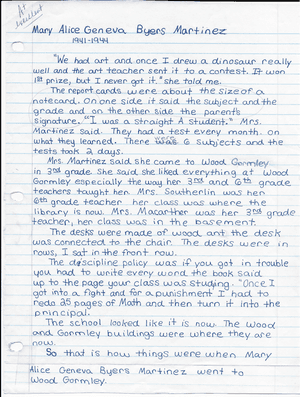 A+
excellent
Mary Alice Geneva Byers Martinez
1941-1944
"We had art and once I drew a dinosaur really
well and the art teacher sent it to a contest. It won
1st prize, but I never got it." she told me.
The report cards were about the size of a
notecard. On one side it said the subject and the
grade and on the other side the parent's
signature. "I was a straight A student." Mrs.
Martinez said. They had a test every month on
what they learned. There were 6 subjects and the
tests took 2 days.
Mrs. Martinez said she came to Wood Gormley
in 3rd grade. She said she liked everything at Wood
Gormley especially the way her 3rd and 6th grade
teachers taught her. Mrs. Southerlin was her
6th grade teacher her class was where the
library is now. Mrs. Macarther was her 3rd grade
teacher, her class was in the basement.
The desks were made of wood and the desk
was connected to the chair. The desks were in
rows, I sat in the front row.
The discipline policy was if you got in trouble
you had to write every word the book said
up to the page your class was studying. "Once I
got into a fight and for a punishment I had to
redo 25 pages of Math and then turn it into the
principal.
The school looked like it is now. The Wood
and Gormley buildings were where they are
now.
So that is how things were when Mary
Alice Geneva Byers Martinez went to
Wood Gormley.